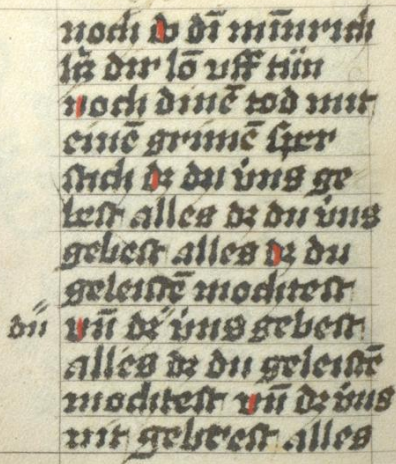 noch do dī mīnrich
h̄ dir lō vff tūn
noch dinē tod mit
einē grimē sper
stich dz du v́ns ge
best alles dz du v́ns
gebest alles dz du
geleistē mochtest
dú vn̄ dz v́ns gebest
alles dz du geleistē
mochtest vn̄ dz v́ns
nit gebrest alles